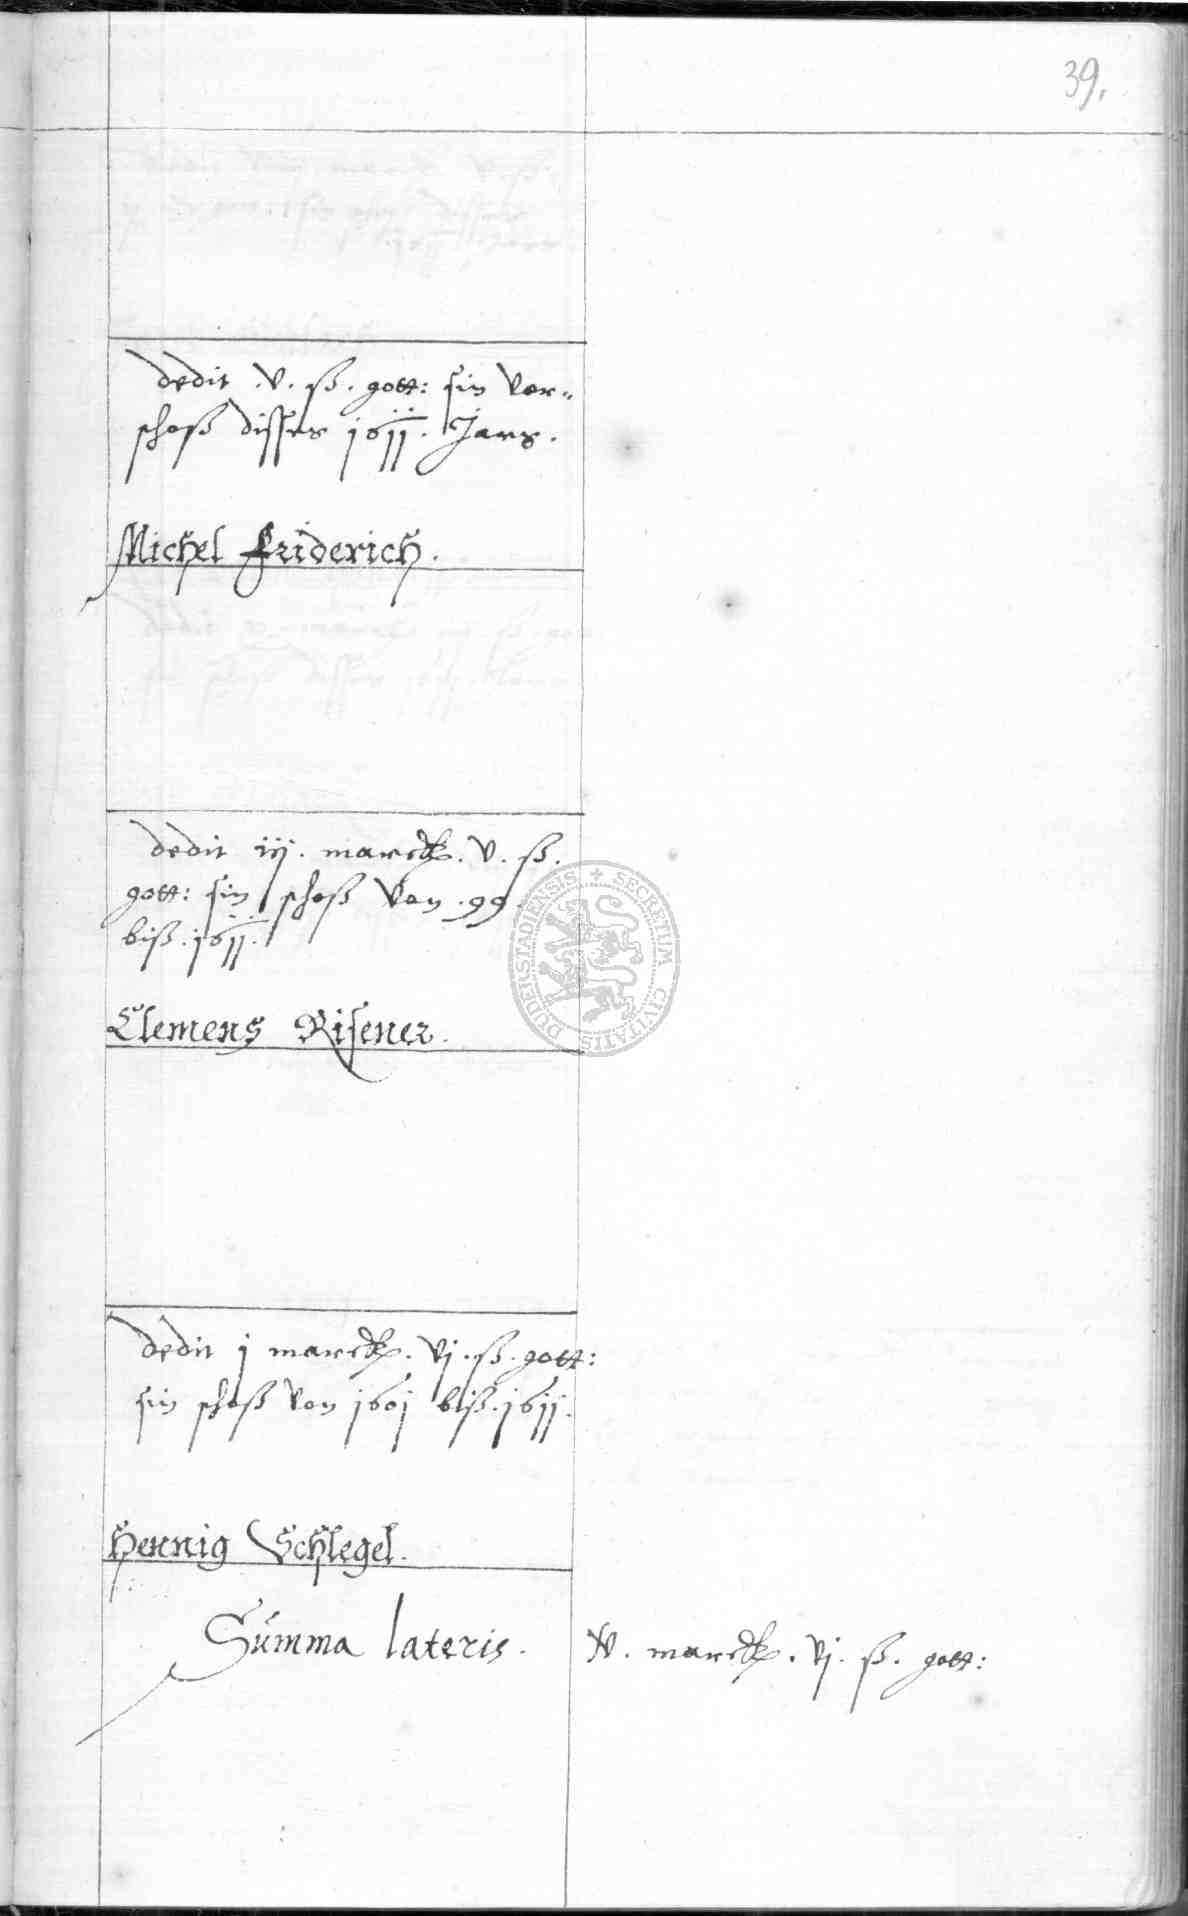 39.
dedit .v. ß. gott: sin vor-
schoß disses 1611. Jars.
Michel Friderich.
dedit iij. marck. v. ß.
gott: sin schoß von .99.
biß. 1611.
Clemens Risener.
dedit j marck. vj. ß. gott:
sin schoß von 1601 biß. 1611.
Hennig Schlegel.
Summa lateris. iv. marck. vj. ß. gott:
SECRETUM CIVITATIS DUDERSTADIENSIS